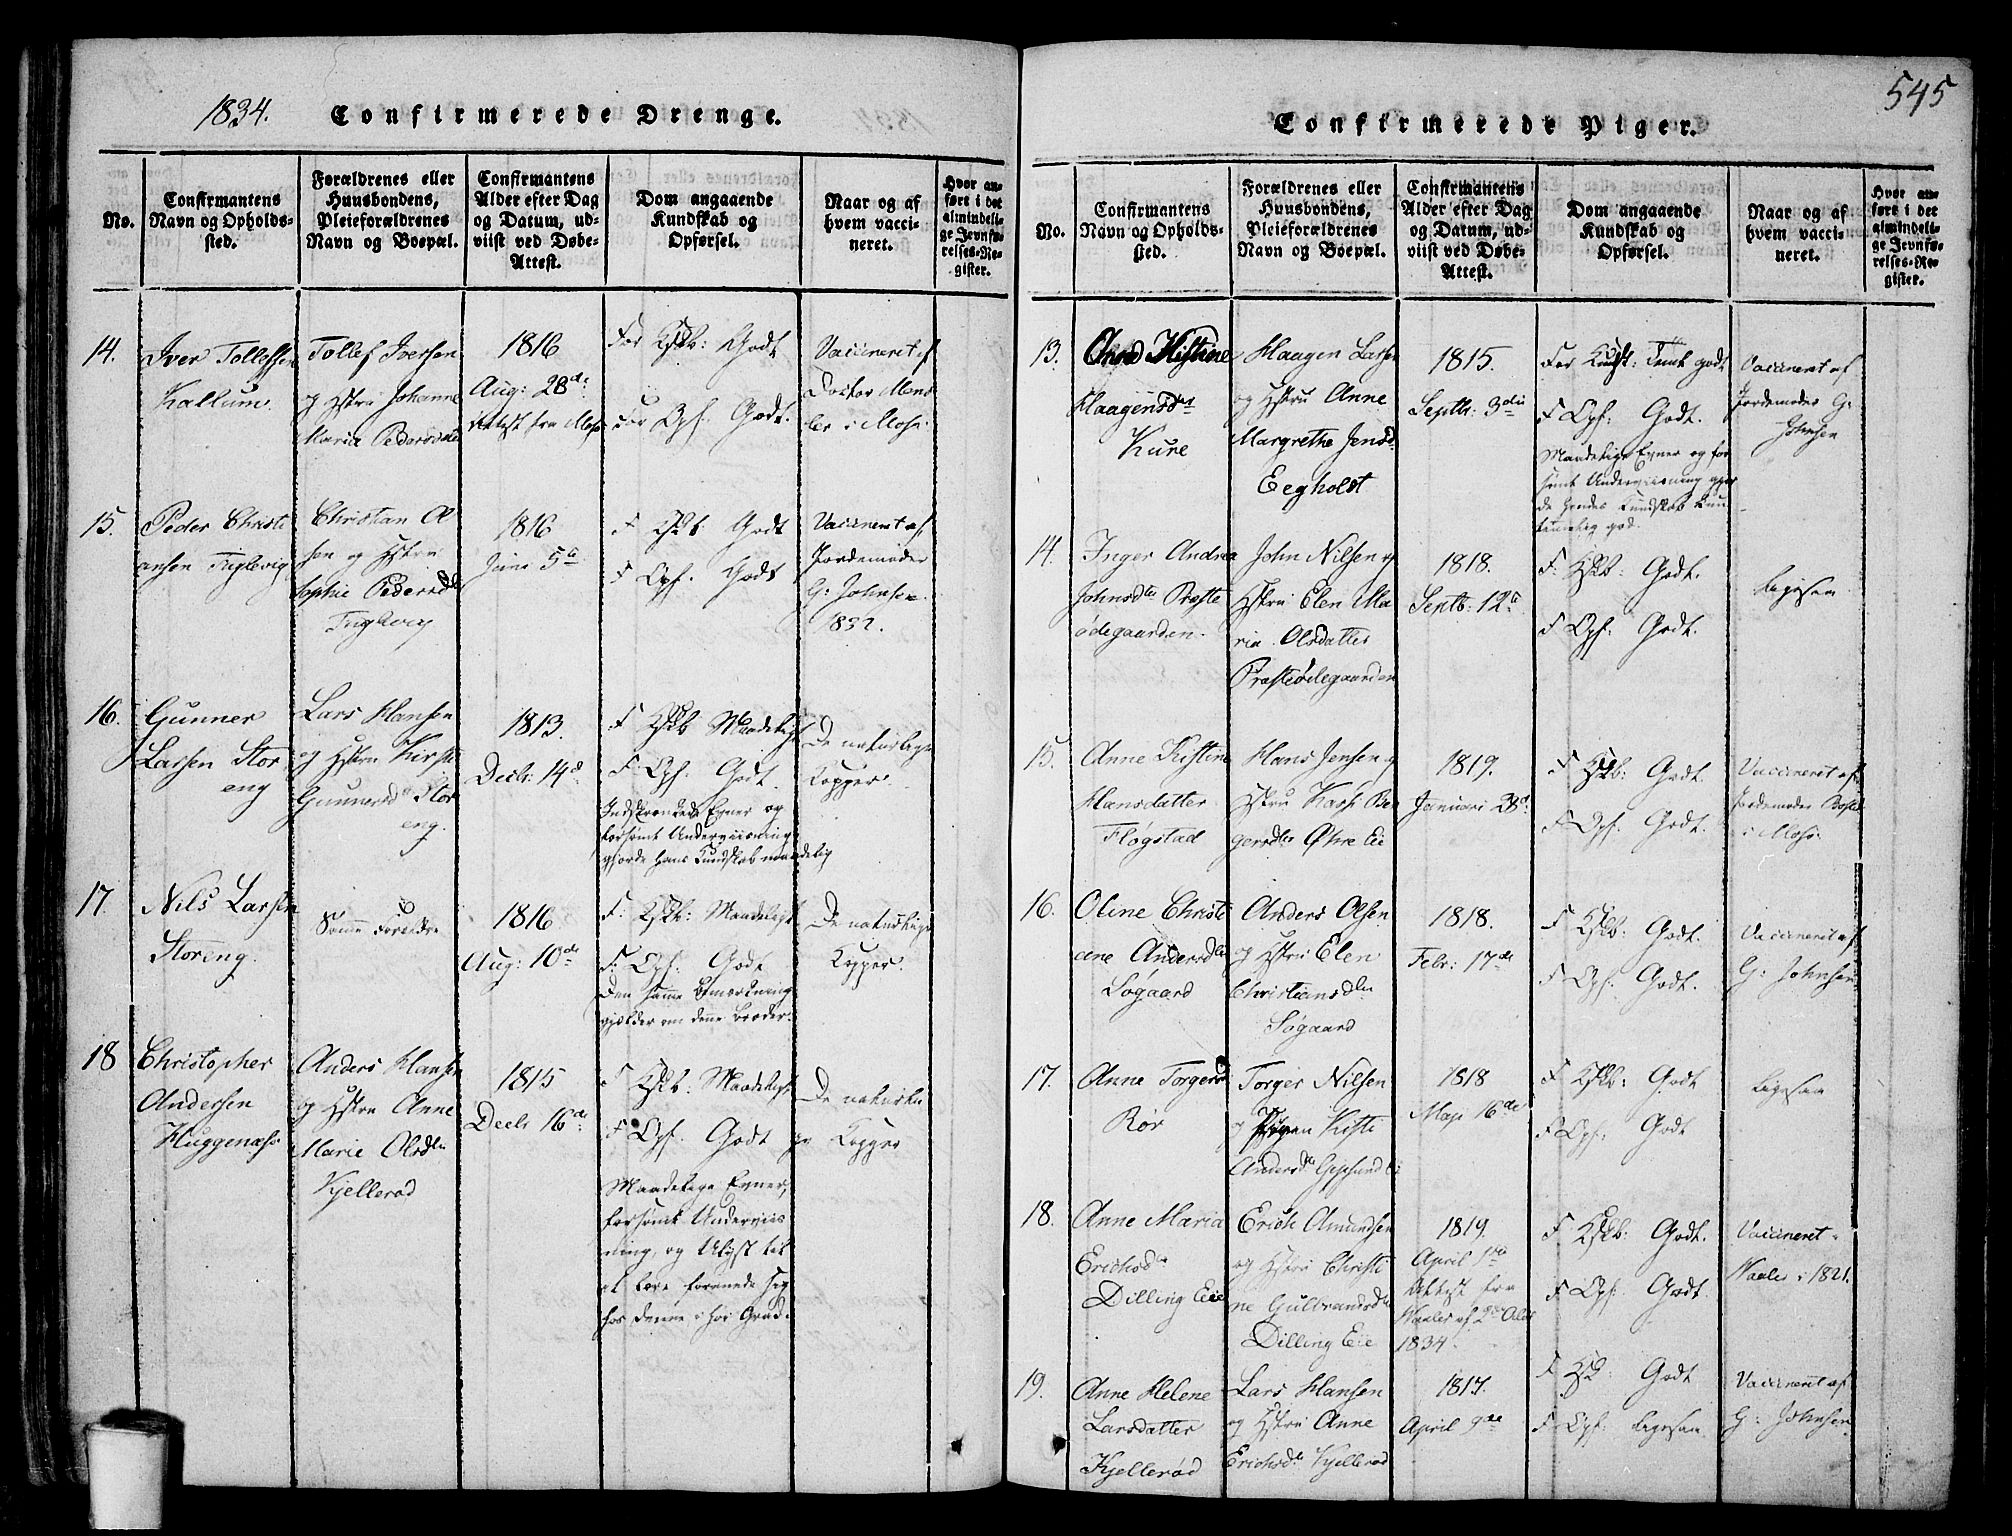 1834.
Confirmerede Drenge.
No.
Confirmantens
Navn og Opholds-
sted.
Forældrenes eller
Huusbondens,
Pleieforældrenes
Navn og Boepæl.
Confirmantens
Alder efter Dag
og Datum, ud-
viist ved Døbe-
Attest.
Dom angaaende
Kundskab og
Opførsel.
Naar og af
hvem vacci-
neret.
Hvor an-
ført i det
almindeli-
ge Jevnfø-
relses-Re-
gister.
14.
Iver Tollefsen
Kallum.
Tollef Iversen
og Hstru Johanne
Maria Pedersdr
1816
Aug: 28de
Attest fra Moss
For Kskb: Godt
For Opf. Godt.
Vaccineret af
Doctor
i Moss.
15.
Peder Christi
ansen
Christian Ol
sen og Hstru
Sophie Pedersd
1816
Juni 5te
F Kskb Godt
F Opf. Godt
Vaccineret af
Jordemoder
G: Johnsen.
1832.
16.
Gunner
Larsen Stor
eng
Lars Hansen
og Hstru Kirsti
Gunnersd Stor
eng.
1813.
Decb: 14d
F Kskb Maadeligt
F. Opf. Godt.
Indskrænkede Evner og
forsømt Underviisning
gjorde hans Kundskab maadelig
De naturlige
Kopper.
17.
Nils Larsen
Storeng.
Samme Forældre
1816
Aug: 10de
F: Kskb: Maadeligt
F: Opf: Godt
Den samme Bemærkning
gjælder om denne Broder.
De naturlige
Kopper.
18
Christopher
Andersen
Huggenæs
Anders Hansen
og Hstru Anne
Marie Olsdtr
Kjellerød
1815
Decb 16de
F Kskb: Maadeligt
F Opf. Godt
Maadelige Evner,
forsømt Underviis
ning, og Ulyst til
at lære forenede sig
hos denne i høi Grad.
De naturlige
Kopper
545
Confirmerede Piger.
No.
Confirmantens
Navn og Opholds-
sted.
Forældrenes eller
Huusbondens,
Pleieforældrenes
Navn og Boepæl.
Confirmantens
Alder efter Dag
og Datum, ud-
viist ved Døbe-
Attest.
Dom angaaende
Kundskab og
Opførsel.
Naar og af
hvem vacci-
neret.
Hvor an-
ført i det
almindeli-
ge Jevnfø-
relses-Re-
gister.
13.
Anne Kistine
Haagensdr
Kure
Haagen Larsen
og Hstru Anne
Margrethe Jensd.
Eegholdt
1815.
Septb: 3die
For Kundsk: Temt godt
F Opf: Godt.
Maadelige Evner og for
sømt Underviisning gjor
de hendes Kundskab kun
temmelig god.
Vaccineret af
Jordemoder G:
Johnsen
14.
Inger Andrea
Johnsdtr Præste
ødegaarden.
John Nilsen og
Hstru Elen Ma
ria Olsdatter
Præsteødegaarden
1818.
Septb: 12te
F: Kskb: Godt.
F Opf: Godt.
Ligesaa
15.
Anne Kistine
Hansdatter
Fløgstad
Hans Jensen og
Hstru
1819.
Januari 28d.
F Kskb: Godt.
F Opf: Godt.
Vaccineret af
Jordemoder
i Moss.
16.
Oline Christi
ane Andersdtr
Søgaard
Anders Olsen
og Hstru Elen
Christiansdtr
Søgaard
1818.
Febr: 17de
F Kskb: Godt.
F Opf: Godt.
Vaccineret af
G: Johnsen
17.
Anne Torgersd
Rør
Torger Nilsen
og Kisti
Andersdtr
1818
Maji 16de
F Kskb: Godt
F Opf: Godt
Ligesaa
18.
Anne Maria
Erichsdtr
Dilling Eie
Erich Amundsen
og Hstru Christi
ne Gulbrandsdtr
Dilling Eie
1819.
April 1ste
Attest fra
Waaler af
1834.
F Kskb: Godt.
F Opf: Godt.
Vaccineret
Waaler i 1821.
19.
Anne Helene
Larsdatter
Kjellerød
Lars Hansen
og Hstru Anne
Erichsdtr Kjellerød
1817.
April 9de
F Kskb Godt
F. Opf: Ligesaa
Vaccineret af
G: Johnsen